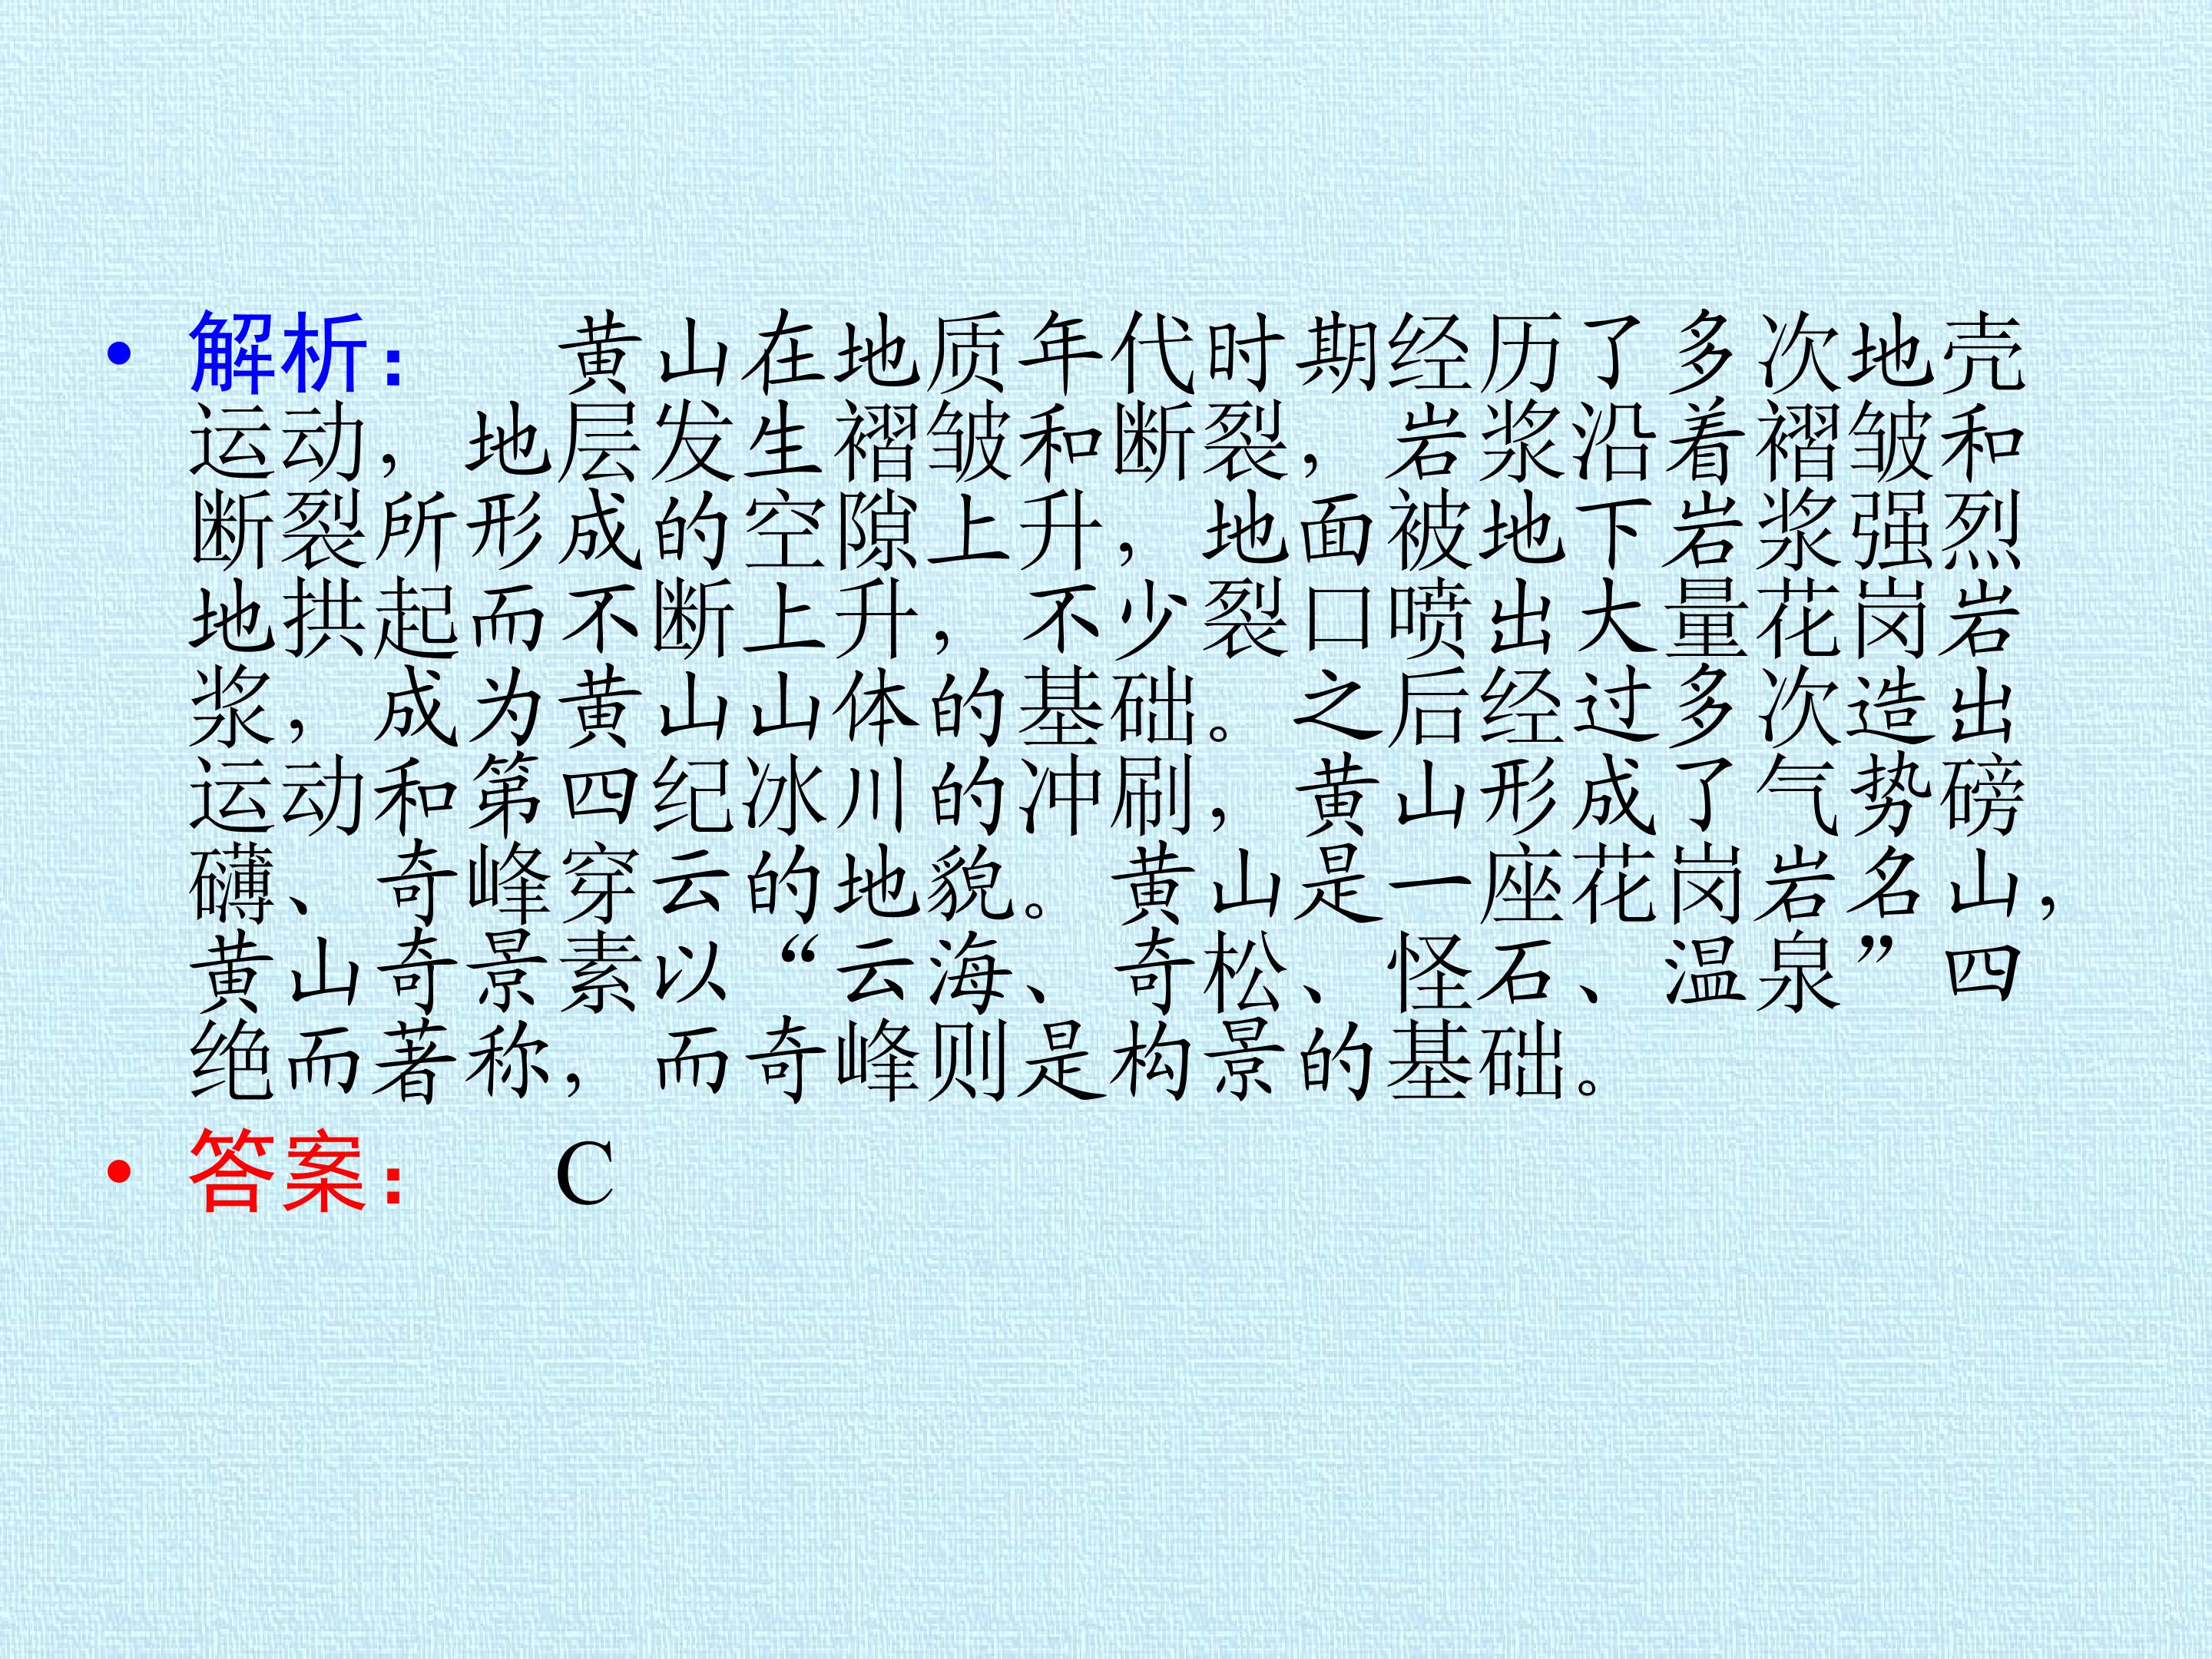 • 解析： 黄山在地质年代时期经历了多次地壳
运动，地层发生褶皱和断裂，岩浆沿着褶皱和
断裂所形成的空隙上升，地面被地下岩浆强烈
地拱起而不断上升，不少裂口喷出大量花岗岩
浆，成为黄山山体的基础。之后经过多次造出
运动和第四纪冰川的冲刷，黄山形成了气势磅
礴、奇峰穿云的地貌。黄山是一座花岗岩名山，
黄山奇景素以“云海、奇松、怪石、温泉”四
绝而著称，而奇峰则是构景的基础。
• 答案： C